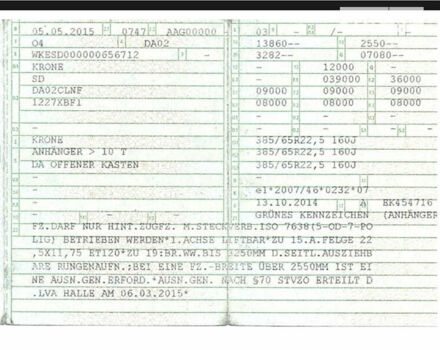 05.05.2015 0747 AAG00000
04 DA02
WKESD000000656712 -
KRONE
SD
DA02CLNF
1227XBF1
-
KRONE
ANHÄNGER > 10 T
DA OFFENER KASTEN
-
-
-
- - -
03 - /-
13860-- 2550--
3282-- 07080--
- 12000 -
- 039000 36000
09000 09000 09000
08000 08000 08000
-
- - - -
385/65R22,5 160J
385/65R22,5 160J
385/65R22,5 160J
-
-
e1*2007/46*0232*07
13.10.2014 A EK454716
GRÜNES KENNZEICHEN (ANHÄNGER
FZ.DARF NUR HINT.ZUGFZ. M.STECKVERB.ISO 7638(5-OD-7-PO
LIG) BETRIEBEN WERDEN*1.ACHSE LIFTBAR*ZU 15.A.FELGE 22
,5X11,75 ET120*ZU 19:BR.WW.BIS 3250MM D.SEITL.AUSZIEHB
ARE RUNGENAUFN.;BEI EINE FZ.-BREITE ÜBER 2550MM IST EI
NE AUSN.GEN.ERFORD.*AUSN.GEN. NACH §70 STVZO ERTEILT D
.LVA HALLE AM 06.03.2015*